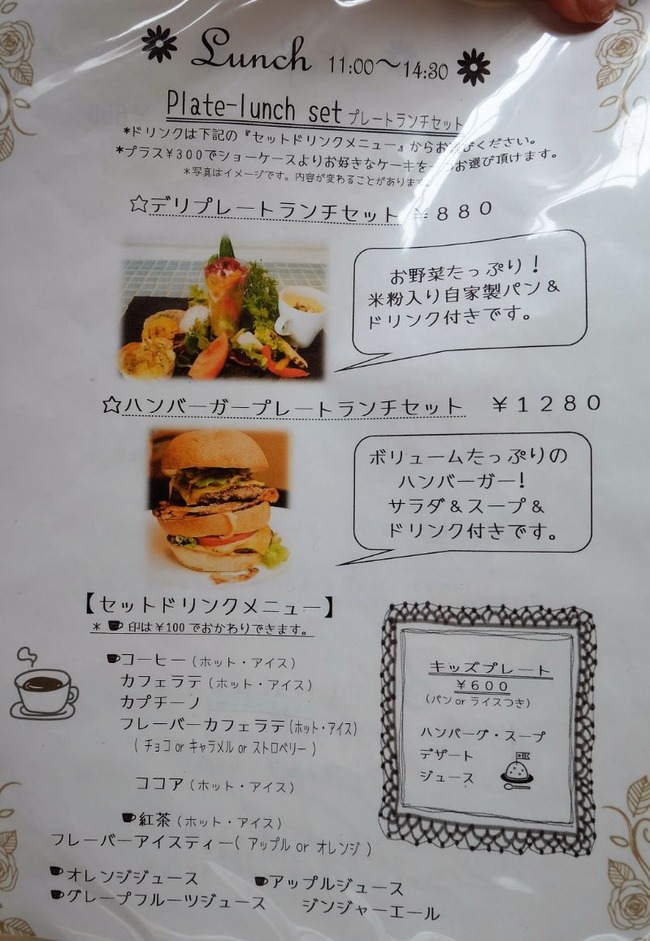 Lunch 11:00～14:30
Plate-lunch set プレートランチセット
*ドリンクは下記の『セットドリンクメニュー』からお選びください。
*プラス¥300でショーケースよりお好きなケーキを一つお選び頂けます。
*写真はイメージです。内容が変わることがあります。
☆デリプレートランチセット ¥880
お野菜たっぷり！
米粉入り自家製パン&
ドリンク付きです。
☆ハンバーガープレートランチセット ¥1280
ボリュームたっぷりの
ハンバーガー!
サラダ&スープ&
ドリンク付きです。
【セットドリンクメニュー】
* 印は¥100でおかわりできます。
コーヒー(ホット・アイス)
カフェラテ(ホット・アイス)
カプチーノ
フレーバーカフェラテ(ホット・アイス)
(チョコ or キャラメル or ストロベリー)
ココア(ホット・アイス)
紅茶(ホット・アイス)
フレーバーアイスティー(アップル or オレンジ)
オレンジジュース アップルジュース
グレープフルーツジュース ジンジャーエール
キッズプレート
¥600
(パン or ライスつき)
ハンバーグ・スープ
デザート
ジュース